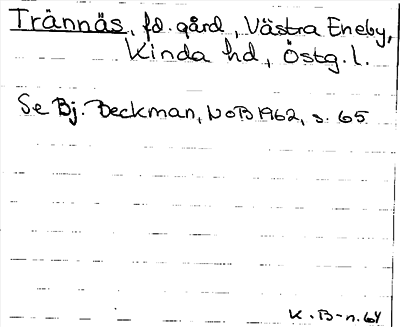 Trännäs, fd. gård, Västra Eneby,
Kinda hd, Östg. l.
Se Bj. Beckman, NoB 1962, s. 65
K. B-n. 64